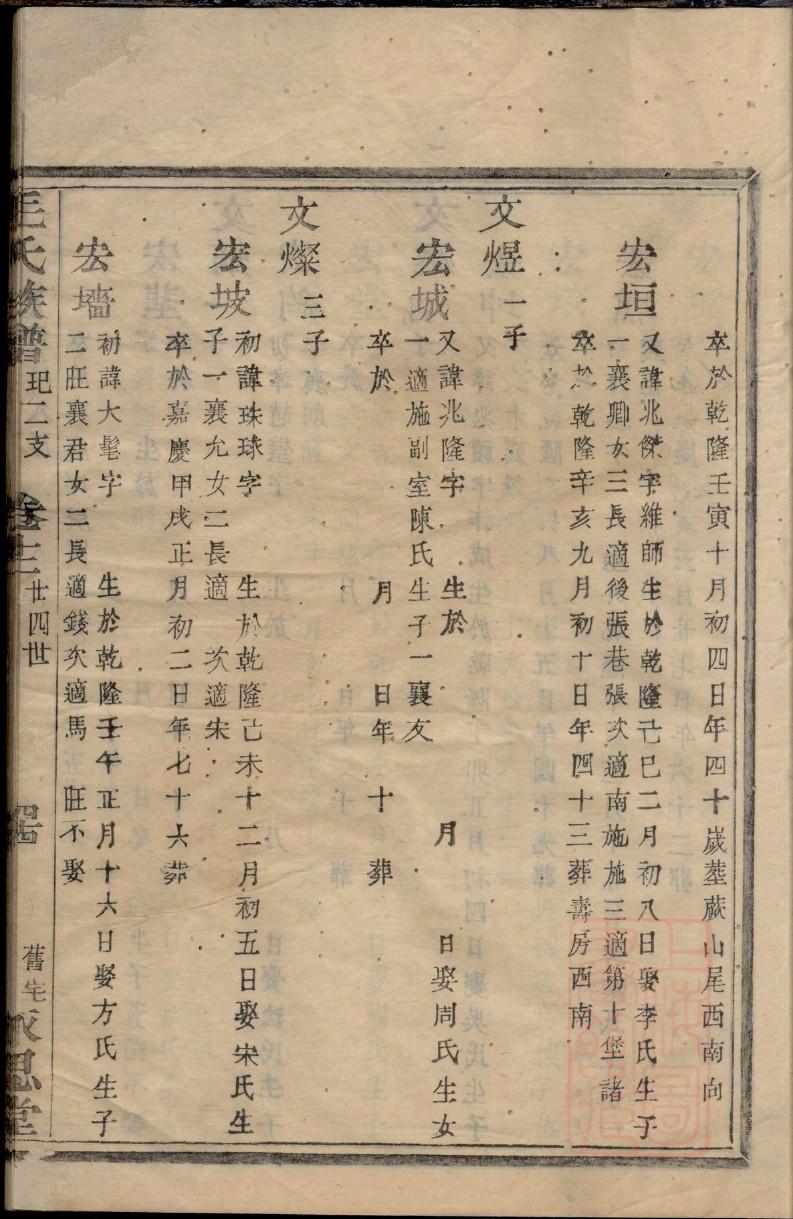 卒於乾隆壬寅十月初四日年四十歲塟蕨山尾西南向
宏垣
又諱兆傑字維師生於乾隆己巳二月初八日娶李氏生子
一襄卿女三長適後張巷張次適南施施三適第十堡諸
卒於乾隆辛亥九月初十日年四十三葬壽房西南
文煜 一子
宏城
又諱兆隆字 生於 月 日娶周氏生女
一適施副室陳氏生子一襄友
卒於 月 日年 十 葬
文燦 三子
宏坡
初諱珠球字 生於乾隆己未十二月初五日娶宋氏生
子一襄允女二長適 次適宋
卒於嘉慶甲戌正月初二日年七十六葬
宏墻
初諱大髦字 生於乾隆壬午正月十六日娶方氏生子
二旺襄君女二長適錢次適馬 旺不娶
王氏族譜 玘二支 卷十二 廿四世 舊宅 永思堂